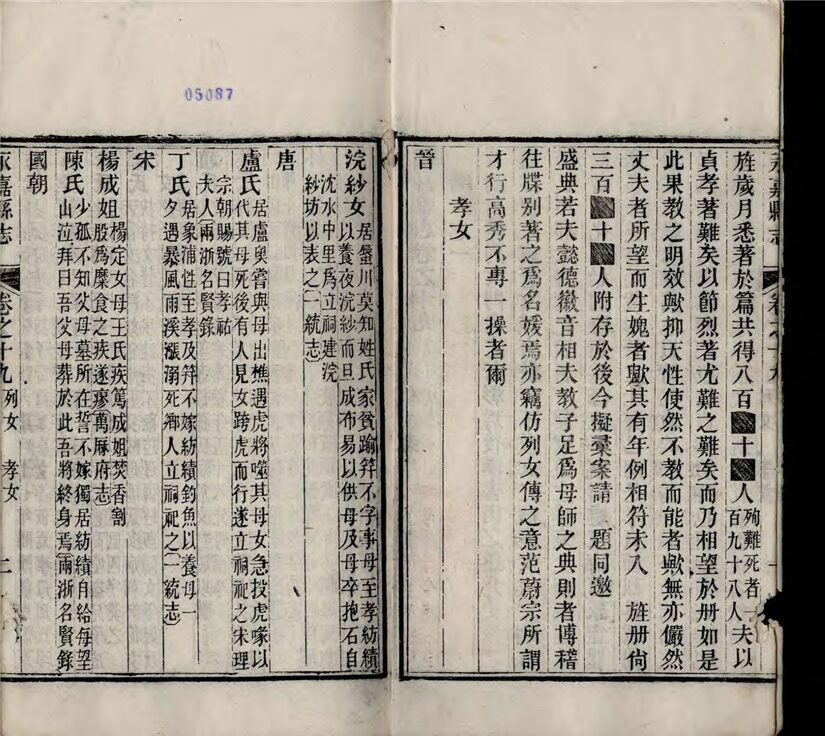 永嘉縣志
卷之十九
旌歲月悉著於篇共得八百十人殉難死者一百九十八人夫以
貞孝著難矣以節烈著尤難之難矣而乃相望於册如是
此果教之明效歟抑天性使然不教而能者歟無亦儼然
丈夫者所望而生媿者歟其有年例相符未入 旌册尙
三百十人附存於後今擬彚案請 題同邀
盛典若夫懿德徽音相夫教子足爲母師之典則者博稽
往牒别著之爲名媛焉亦竊仿列女傳之意范蔚宗所謂
才行高秀不專一操者爾
孝女
晉
浣紗女居蜃川莫知姓氏家貧踰筓不字事母至孝紡績
以養夜浣紗而旦成布易以供母及母卒抱石自
沈水中里爲立祠建浣
紗坊以表之一統志
唐
盧氏居盧奥嘗與母出樵遇虎將噬其母女急投虎喙以
代其母死後有人見女跨虎而行遂立祠祀之宋理
宗朝賜號曰孝祐
夫人兩浙名賢錄
丁氏居象浦性至孝及筓不嫁紡績釣魚以養母一
夕遇暴風雨溪漲溺死鄉人立祠祀之一統志
宋
楊成姐楊定女母王氏疾篤成姐焚香割
股爲糜食之疾遂瘳萬厤府志
陳氏少孤不知父母墓所在誓不嫁獨居紡績自給每望
山泣拜曰吾父母葬於此吾將終身焉兩浙名賢錄
國朝
永嘉縣志
卷之十九 列女 孝女 二
05087